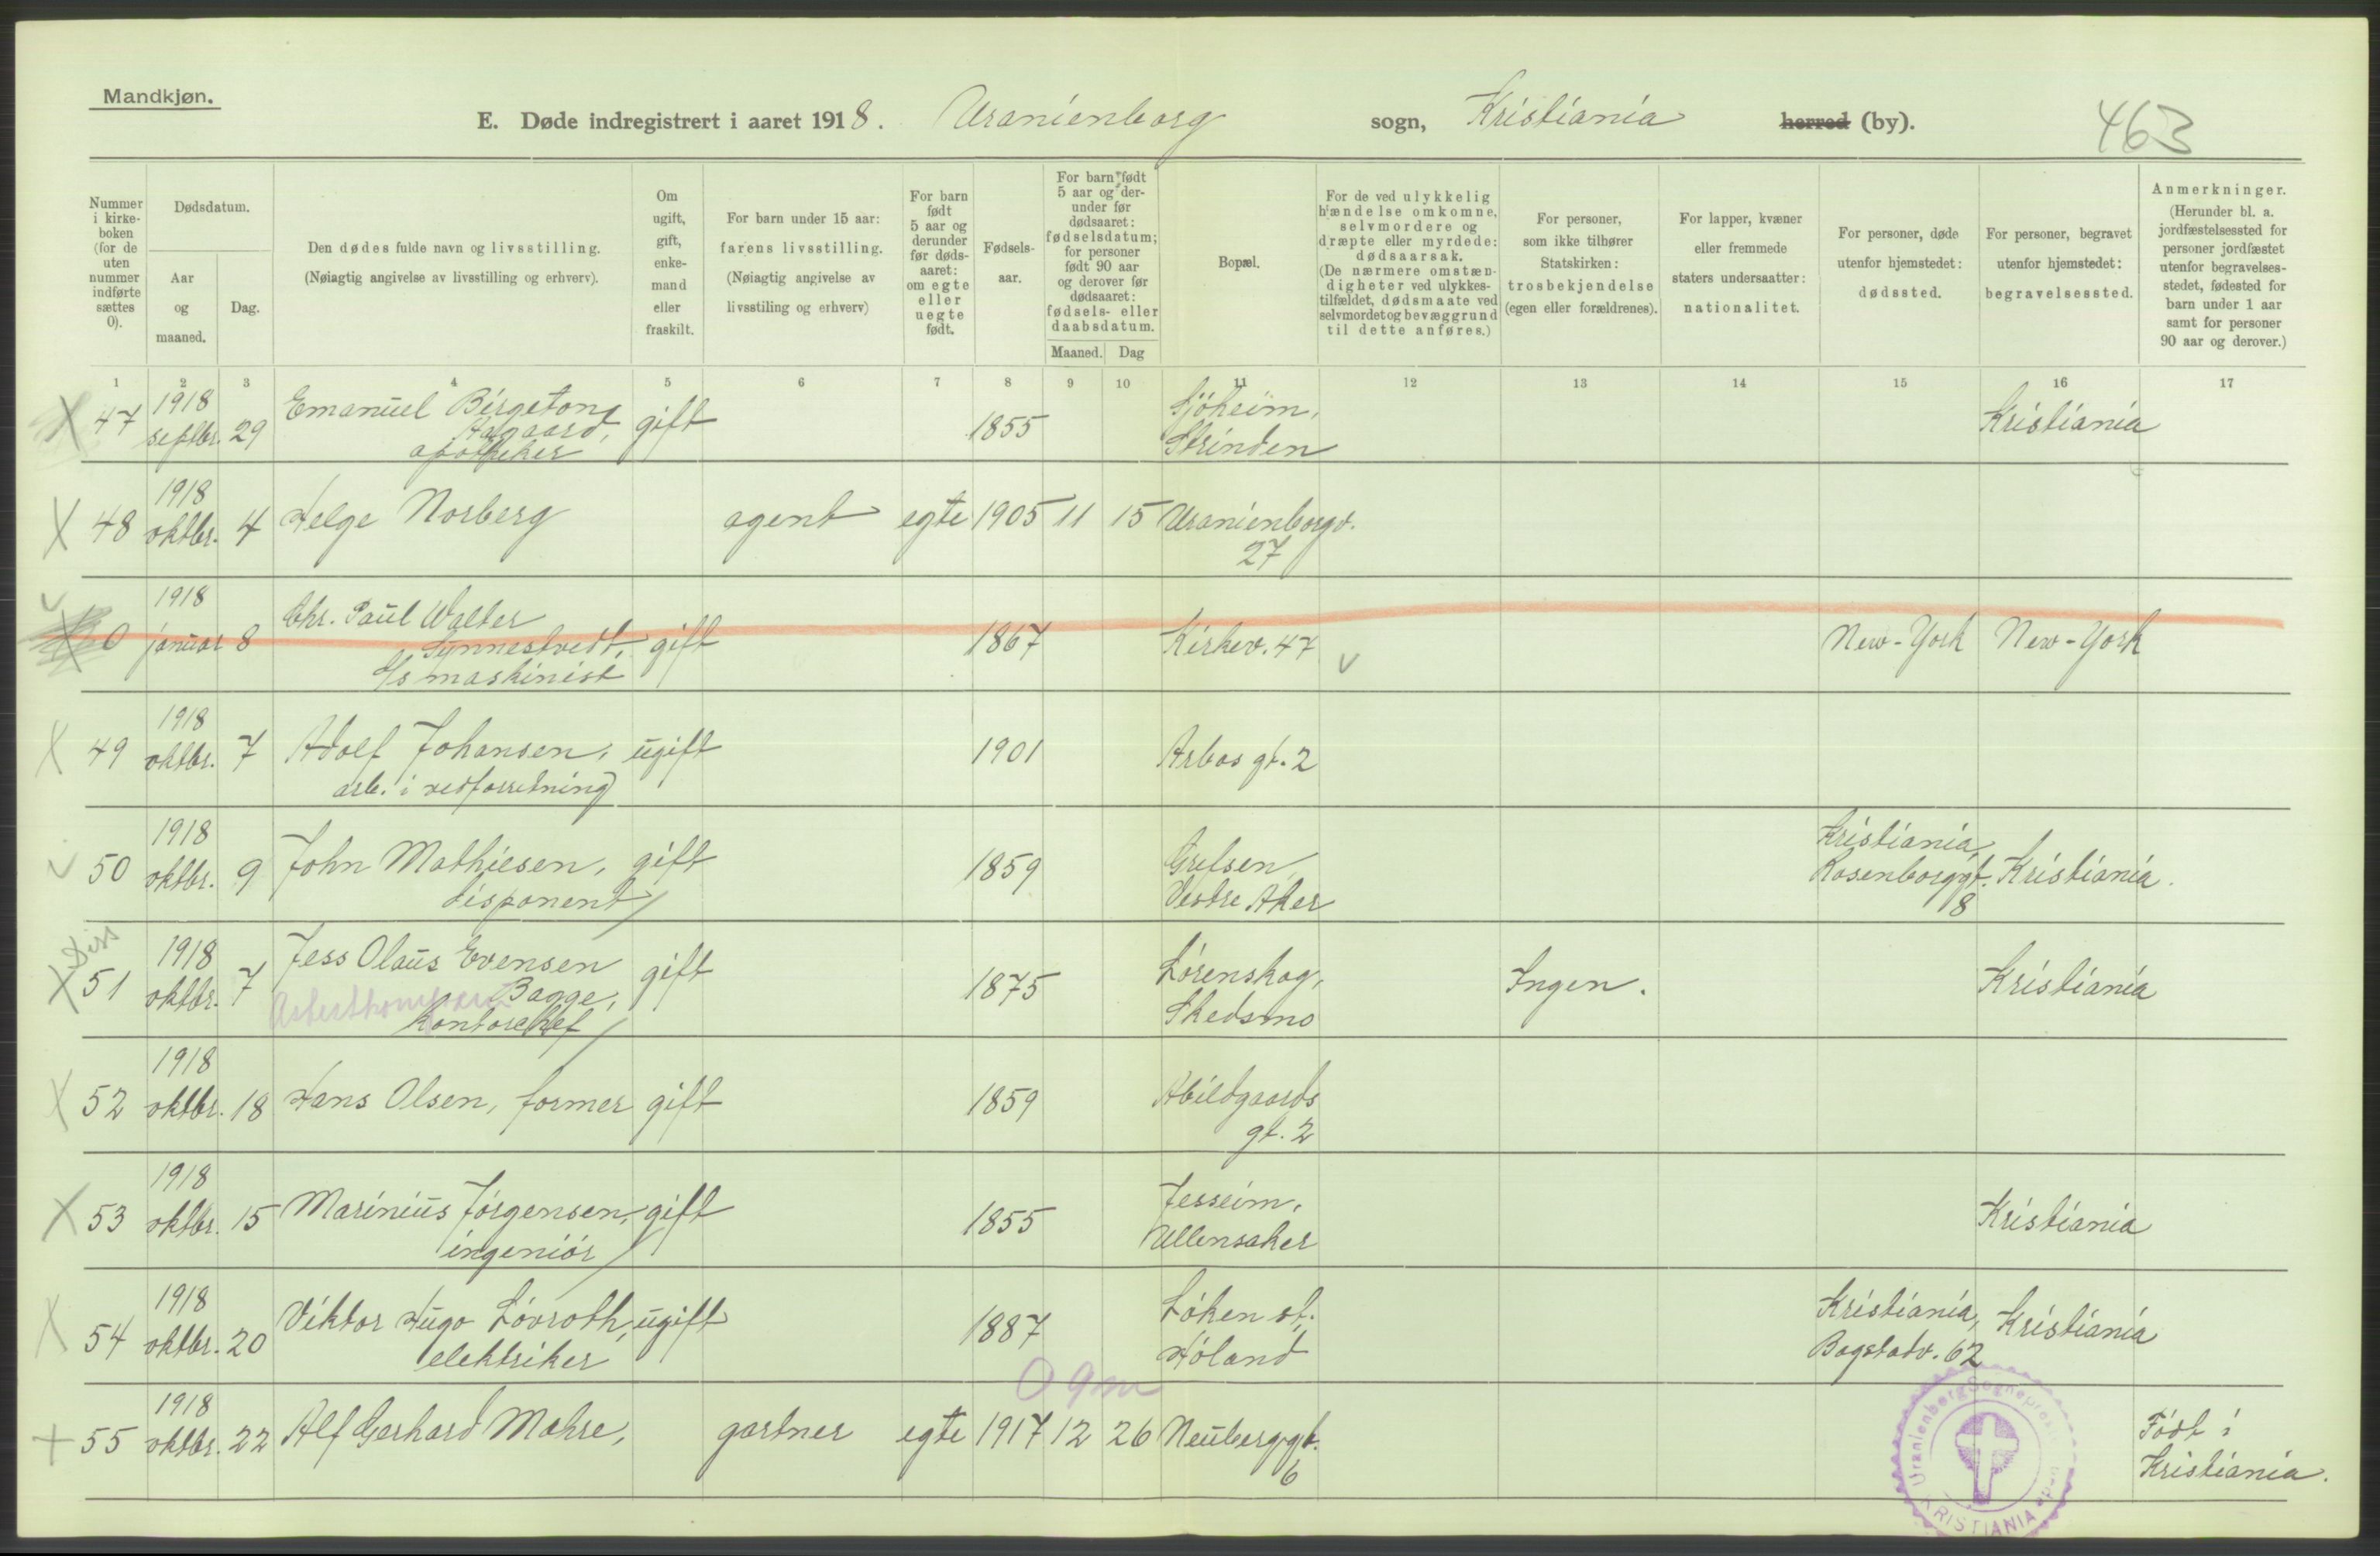 Mandkjøn.
E. Døde indregistrert i aaret 1918. Uranienborg sogn, Kristiania herred (by).
463
Nummer i kirke- boken (for de uten nummer indførte sættes 0).
Dødsdatum.
Aar og maaned.
Dag.
Den dødes fulde navn og livsstilling.
(Nøiagtig angivelse av livsstilling og erhverv).
Om ugift, gift, enke- mand eller fraskilt.
For barn under 15 aar:
farens livsstilling.
(Nøiagtig angivelse av
livsstiling og erhverv)
For barn født 5 aar og derunder før døds- aaret: om egte eller uegte født.
Fødsels- aar.
For barn født 5 aar og der- under før dødsaaret: fødselsdatum; for personer født 90 aar og derover før dødsaaret: fødsels- eller daabsdatum.
Maaned. Dag
Bopæl.
For de ved ulykkelig hændelse omkomne, selvmordere og dræpte eller myrdede: dødsaarsak. (De nærmere omstæn- digheter ved ulykkes- tilfældet, dødsmaate ved selvmordet og bevæggrund til dette anføres.)
For personer, som ikke tilhører Statskirken: trosbekjendelse (egen eller forældrenes).
For lapper, kvæner eller fremmede staters undersaatter: nationalitet.
For personer, døde utenfor hjemstedet: dødssted.
For personer, begravet utenfor hjemstedet: begravelsessted.
Anmerkninger.
(Herunder bl. a. jordfæstelsessted for personer jordfæstet utenfor begravelses- stedet, fødested for barn under 1 aar samt for personer 90 aar og derover.)
1 2 3 4 5 6 7 8 9 10 11 12 13 14 15 16 17
X 47 1918 septbr. 29 Emanuel Birgeton Aagaard, apotheker gift 1855 Sjöheim, Strinden Kristiania
X 48 1918 oktbr. 4 Helge Norberg agent egte 1905 11 15 Uranienborgv. 27
0 1918 januar 8 Chr. Paul Walter Synnestvedt, S/s maskinist gift 1867 Kirkev. 47 New-York New-York
X 49 1918 oktbr. 7 Adolf Johansen, arb. i vedforretning ugift 1901 Arbos gt. 2
50 1918 oktbr. 9 John Mathiesen, disponent gift 1859 Grefsen, Vestre Aker Kristiania, Rosenborggt. 8 Kristiania.
X 51 1918 oktbr. 7 Jess Olaus Evensen Bagge, kontorchef gift 1875 Lörenskog, Skedsmo Ingen. Kristiania
X 52 1918 oktbr. 18 Hans Olsen, former gift 1859 Abildgaards gt. 2
X 53 1918 oktbr. 15 Marinius Jörgensen, ingeniör gift 1855 Jesseim, Ullensaker Kristiania
X 54 1918 oktbr. 20 Viktor Hugo Lövroth, elektriker ugift 1887 Löken st. Höland Kristiania, Bogstadv. 62 Kristiania
0 9m
+ 55 1918 oktbr. 22 Alf Gerhard Mohre, gartner egte 1917 12 26 Neuberggt. 6 Födt i Kristiania.
Uranienborg Sognepres
KRISTIANIA